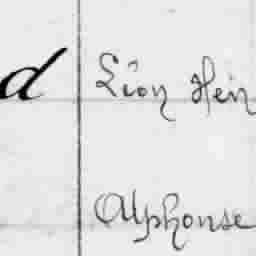 d Léon Hein
Alphonse